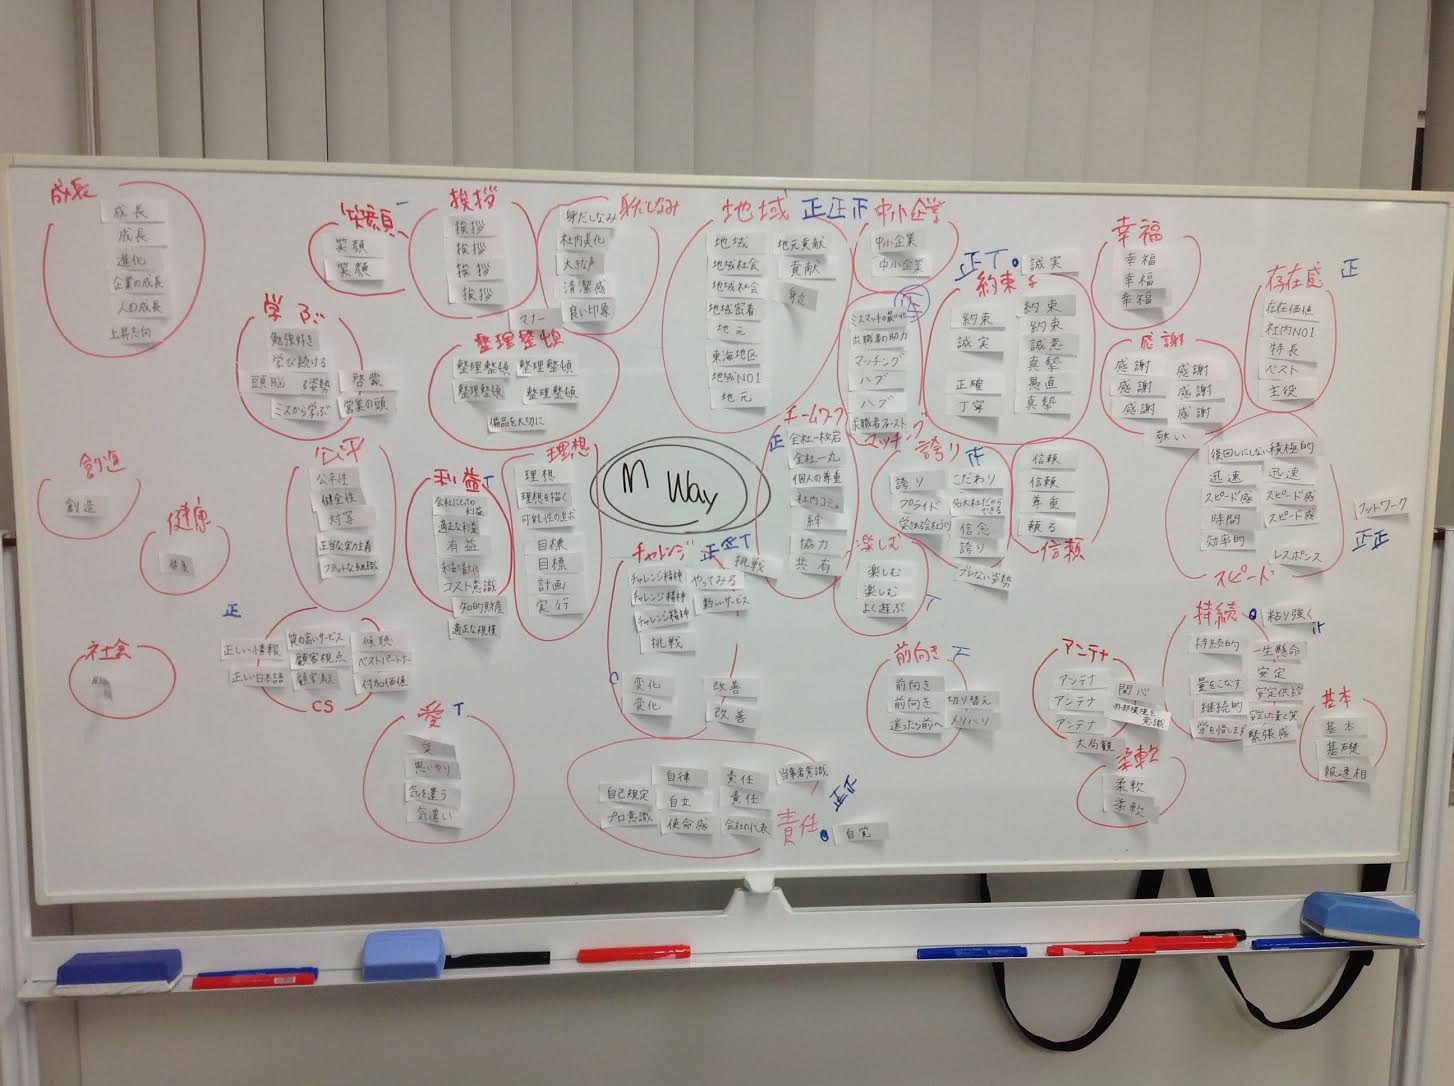 成長
成長
成長
進化
企業の成長
人の成長
上昇志向
笑顔
笑顔
笑顔
挨拶
挨拶
挨拶
挨拶
挨拶
マナー
身だしなみ
身だしなみ
社内美化
大きな声
清潔感
良い印象
地域
正正正
地域
地域社会
地域社会
地域密着
地元
東海地区
地域NO1
地元
地元貢献
貢献
身近
中小企業
中小企業
中小企業
ミスマッチの最小化
求職者の助力
マッチング
ハブ
ハブ
求職者ファースト
マッチング
正
正T
誠実
約束
約束
誠実
正確
丁寧
約束
約束
誠意
真摯
愚直
真摯
幸福
幸福
幸福
幸福
感謝
感謝
感謝
感謝
感謝
感謝
感謝
敬い
存在感
正
存在価値
社内NO1
特長
ベスト
主役
学ぶ
勉強好き
学び続ける
頭脳
姿勢
ミスから学ぶ
啓蒙
営業の頭
整理整頓
整理整頓
整理整頓
整理整頓
整理整頓
備品を大切に
創造
創造
健康
健康
社会
公平
公平性
健全性
対等
正当な実力主義
フラットな組織
利益
T
会社にとっての利益
適正な利益
有益
利益の最大化
コスト意識
知的財産
適正な規模
理想
理想
理想を描く
可能性の追求
目標
目標
計画
実行
M Way
チームワーク
正
全社一枚岩
全社一丸
個人の尊重
社内コミュ
絆
協力
共有
誇り
誇り
プライド
こだわり
信念
誇り
ブレない姿勢
信頼
信頼
尊重
頼る
信頼
後回しにしない
積極的
迅速
迅速
スピード感
スピード感
時間
スピード感
効率的
レスポンス
スピード
フットワーク
正正
チャレンジ
正正T
チャレンジ精神
チャレンジ精神
チャレンジ精神
挑戦
やってみる
新しいサービス
挑戦
変化
変化
改善
改善
楽しむ
楽しむ
楽しむ
よく遊ぶ
T
正
正しい情報
正しい日本語
質の高いサービス
顧客視点
顧客満足
傾聴
ベストパートナー
付加価値
CS
愛
T
愛
思いやり
気を遣う
気遣い
前向き
前向き
前向き
迷ったら前へ
切り替え
メリハリ
アンテナ
アンテナ
アンテナ
アンテナ
関心
外部環境を意識
大局観
柔軟
柔軟
柔軟
持続
粘り強く
持続的
量をこなす
継続的
労を惜します
一生懸命
安定
安定供給
緊張感
基本
基本
基礎
報連相
自律
責任
当事者意識
自己規定
自立
責任
プロ意識
使命感
会社の代表
責任
自覚